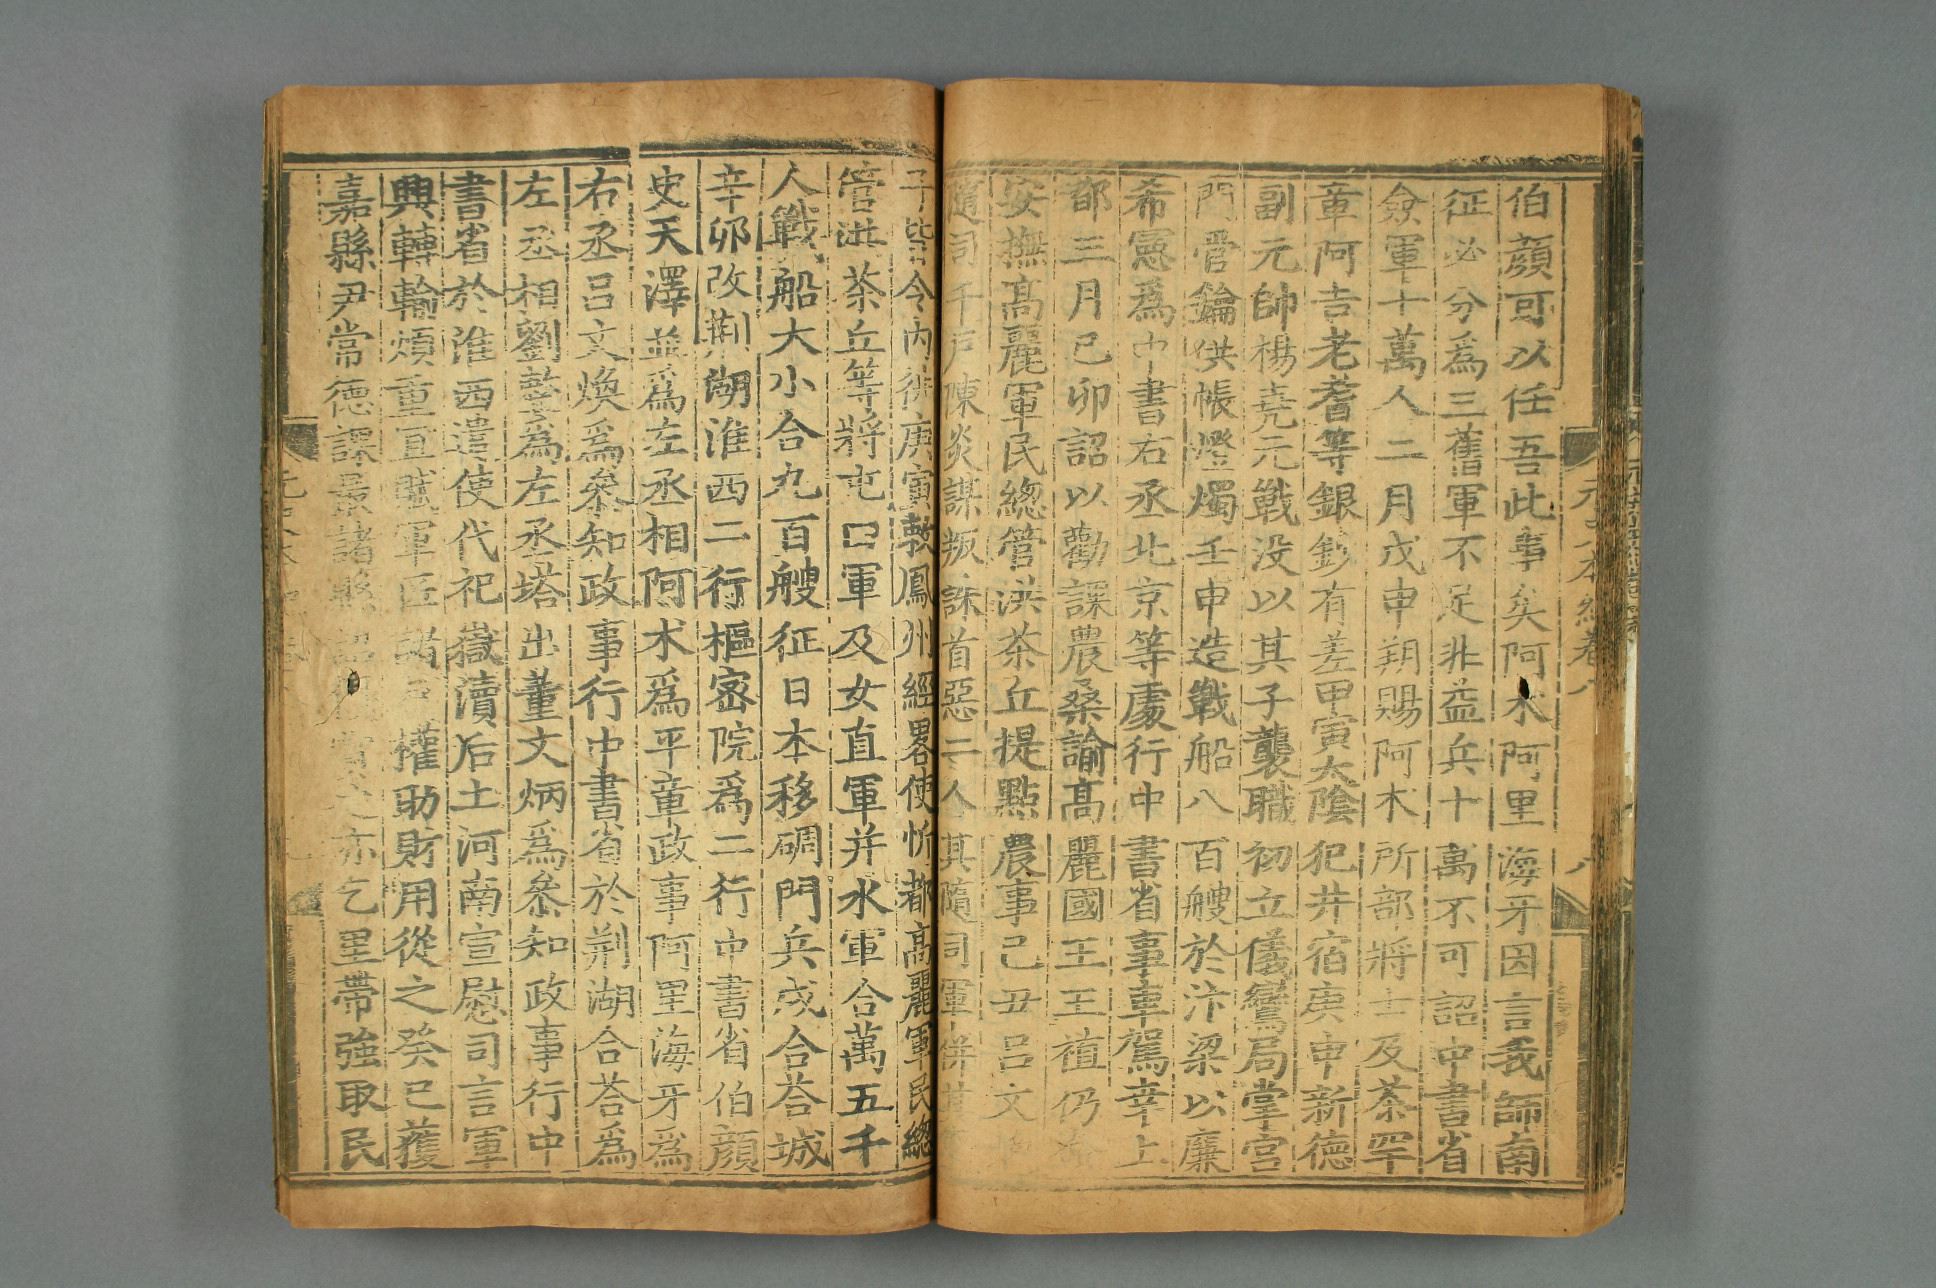 伯顔可以任吾此事矣阿术阿里海牙因言我師南
征必分爲三舊軍不足非益兵十萬不可詔中書省
僉軍十萬人二月戊申朔賜阿术所部將士及茶罕
章阿吉老耆等銀鈔有差甲寅太陰犯井宿庚申新德
副元帥楊堯元戰没以其子襲職初立儀鸞局掌宮
門管鑰供帳燈燭壬申造戰船八百艘於汴梁以廉
希憲爲中書右丞北京等處行中書省事車駕幸上
都三月己卯詔以勸課農桑諭高麗國王王禃仍命
安撫高麗軍民總管洪茶丘提點農事己丑吕文
隨司千戸陳炎謀叛誅首惡二人其隨司軍併其
子皆令内徙庚寅敕鳳州經畧使忻都高麗軍民總
管洪茶丘等將屯田軍及女直軍并水軍合萬五千
人戰船大小合九百艘征日本移碉門兵戍合荅城
辛卯改荆湖淮西二行樞密院爲二行中書省伯顔
史天澤並爲左丞相阿术爲平章政事阿里海牙爲
右丞吕文煥爲叅知政事行中書省於荆湖合荅爲
左丞相劉整爲左丞塔出董文炳爲叅知政事行中
書省於淮西遣使代祀嶽瀆后土河南宣慰司言軍
興轉輸煩重宜賦軍匠諸戸權助財用從之癸巳獲
嘉縣尹常德課最諸縣詔亦乞里帶強取民
元史本紀卷八
八